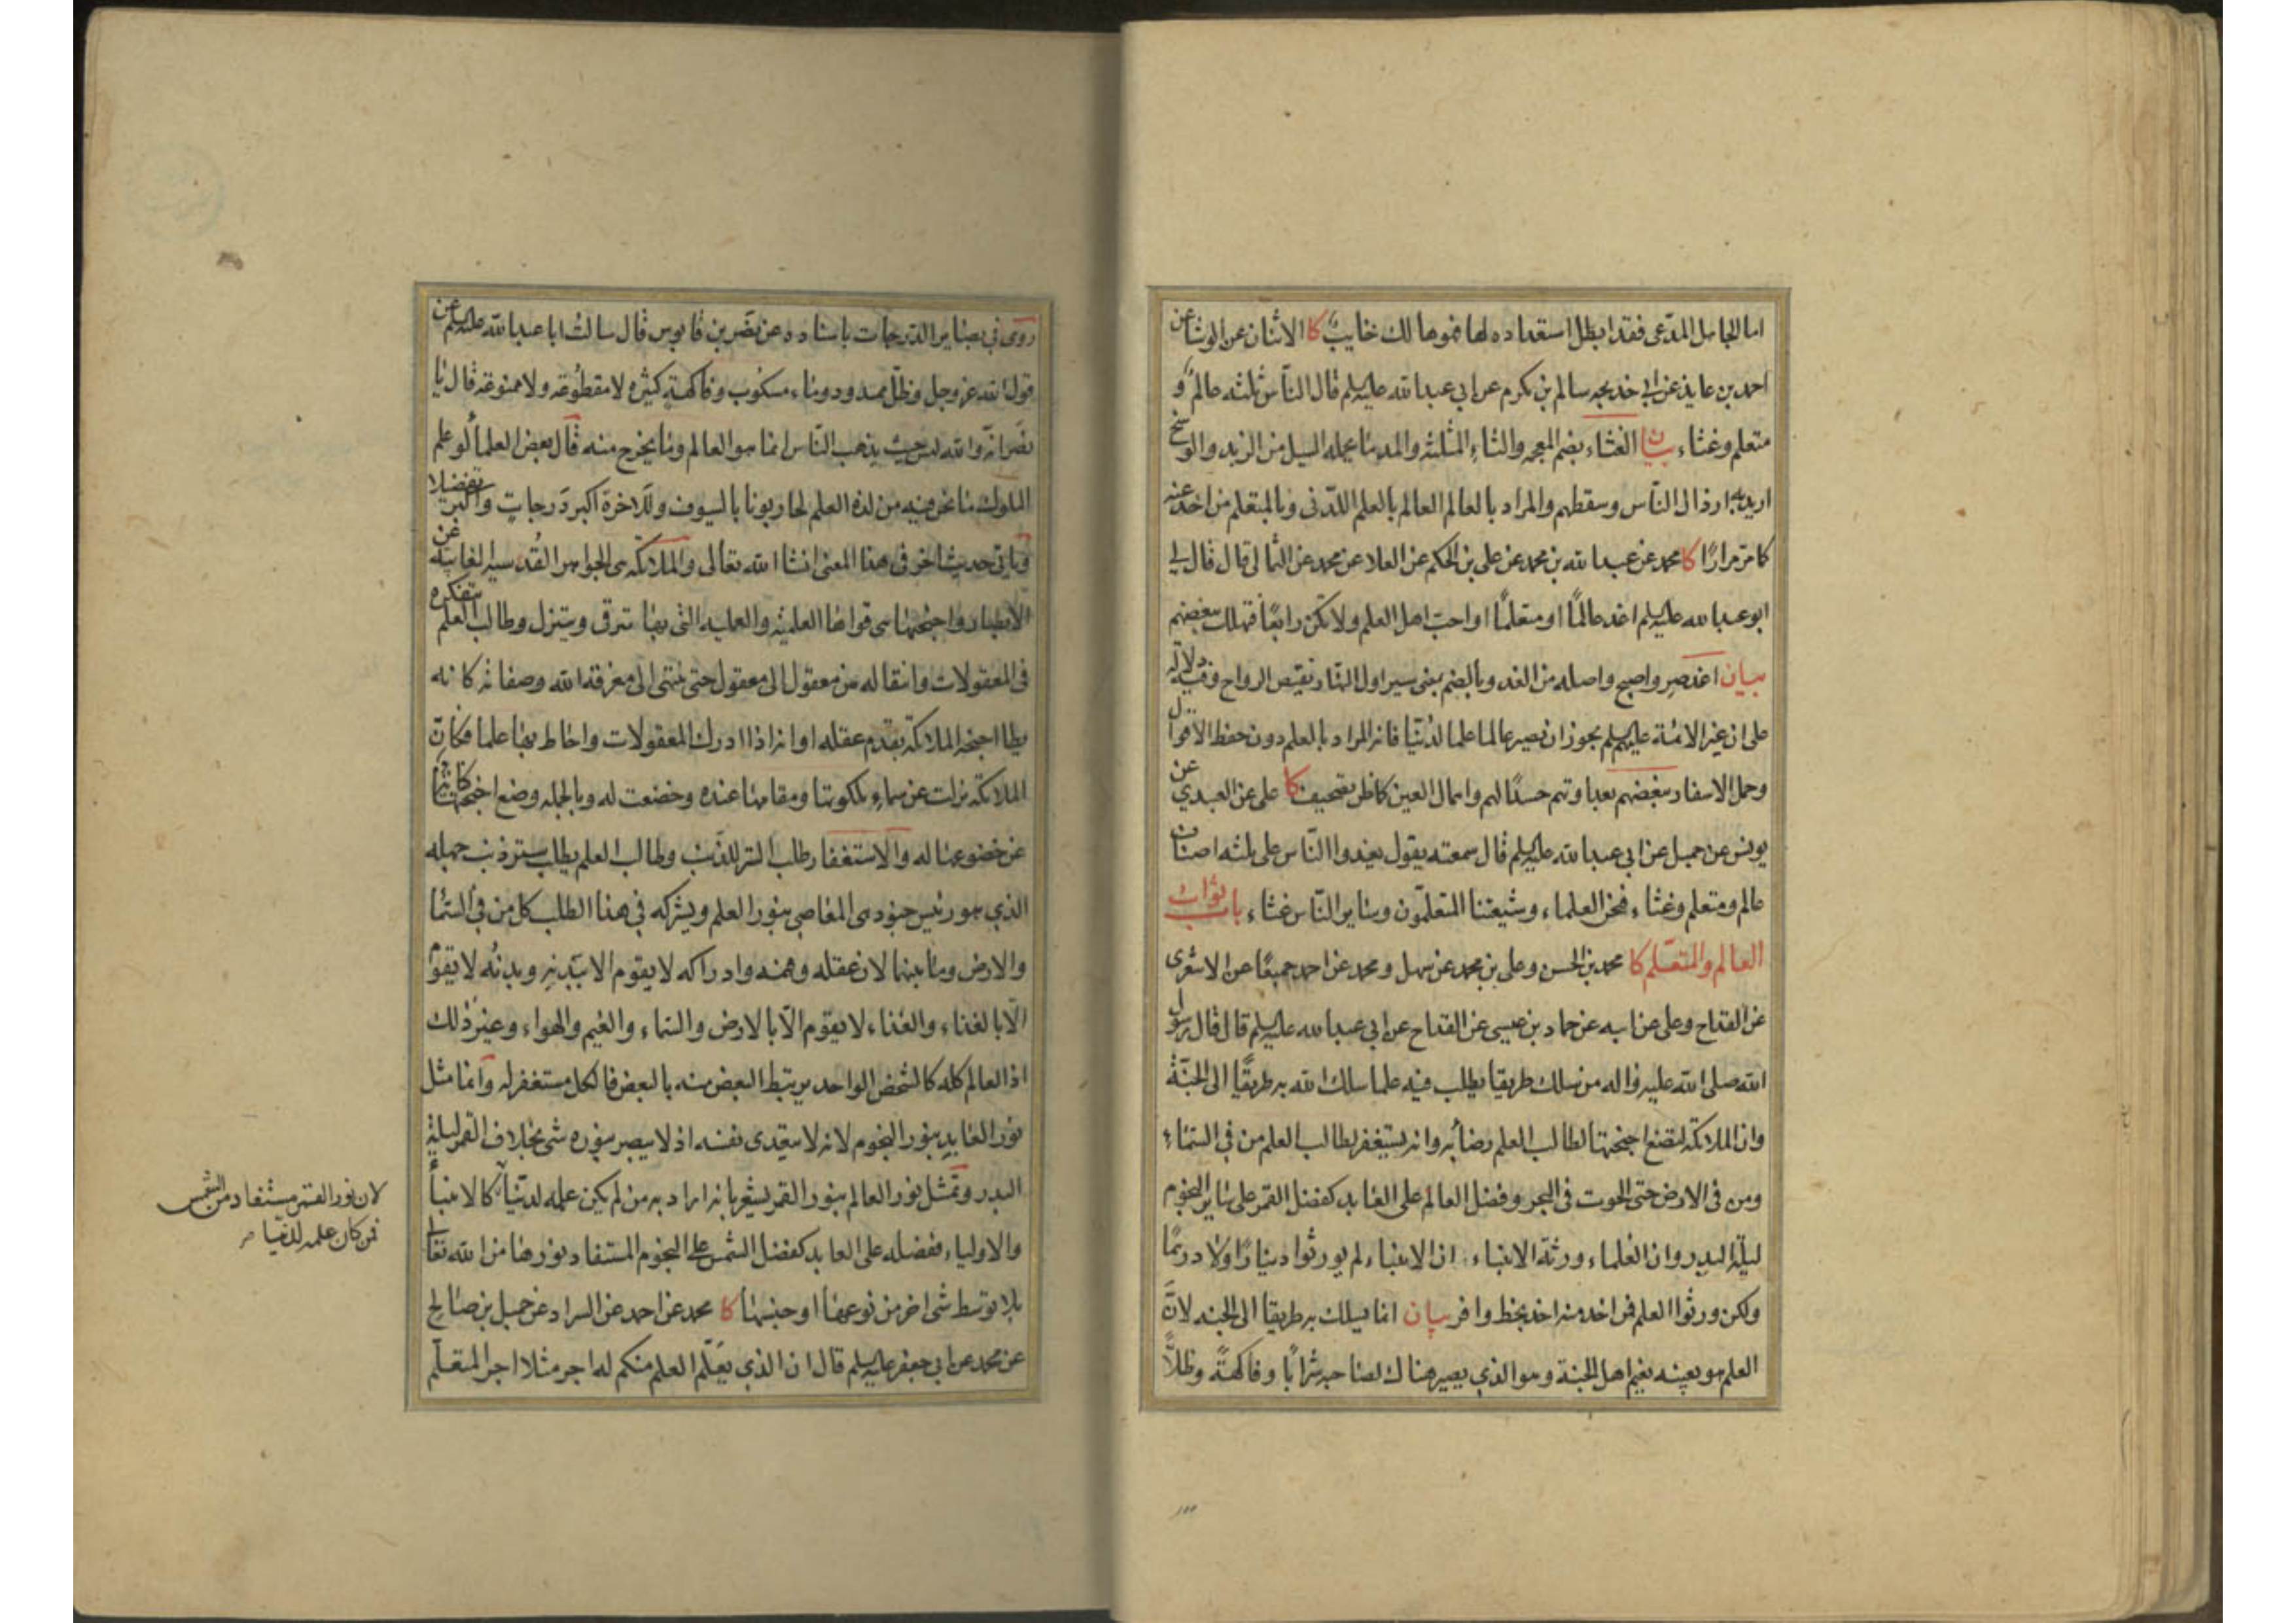 اما الجاهل المدعى فقد ابطل استعداده لها فهو هالك خايبٌ كا الاثنان عن الوشا عن
احمد بن عايذ عن ابى خديجه سالم بن مكرم عن ابي عبدالله عليه السلم قال الناس ثلثه عالمٌ و
متعلم وغثاء بيان الغثاء بضم المعجمه والثاء المثلثه والمد ما يحمله السيل من الزبد والوسخ
اريد به ارذال الناس وسقطهم والمراد بالعالم العالم بالعلم اللدنى وبالمتعلم من اخذ عنه
كما مر مرارًا كا محمد عن عبدالله بن محمد عن على بن الحكم عن العلا عن محمد عن الثمالى قال قال لي
ابو عبدالله عليه السلم اغد عالمًا او متعلمًا او احب اهل العلم ولا تكن رابعًا فتهلك ببغضهم
بيان اغد صر واصبح واصله من الغدو بالضم بمعنى سير اول النهار نقيض الرواح وفيه دلالة
على ان غير الائمة عليهم السلم يجوز ان يصير عالما علما لدُنّيا فانه المراد بالعلم دون حفظ الاقوال
وحمل الاسفار ببغضهم بعداوتهم حسدًا لهم واهمال العين كما ظن تصحيف كا على عن العبيدي عن
يونس عن جميل عن ابي عبدالله عليه السلم قال سمعته يقول يغدوا الناس على ثلثه اصناف
عالم ومتعلم وغثاء فنحن العلماء وشيعتنا المتعلمون وساير الناس غثاء باب ثواب
العالم والمتعلم كا محمد بن الحسن وعلى بن محمد عن سهل ومحمد عن احمد جميعًا عن الاشعرى
عن القداح وعلى عن ابيه عن حماد بن عيسى عن القداح عن ابي عبدالله عليه السلم قال قال رسول
الله صلى الله عليه واله من سلك طريقا يطلب فيه علما سلك الله به طريقًا الى الجنة
وان الملائكة لتضع اجنحتها لطالب العلم رضاً به وانه يستغفر لطالب العلم من في السماء
ومن في الارض حتى الحوت في البحر وفضل العالم على العابد كفضل القمر على ساير النجوم
ليلة البدر وان العلماء ورثة الانبياء ان الانبياء لم يورثوا دينارًا ولا درهمًا
ولكن ورثوا العلم فمن اخذ منه اخذ بحظ وافر بيان انما يسلك به طريقا الى الجنه لانّ
العلم هو بعينه نعيم اهل الجنة وهو الذي يصير هناك لصاحبه شرابًا وفاكهةً وظلاًّ
روى في بصاير الدرجات باسناده عن نضر بن قابوس قال سالت ابا عبدالله عليه السلم عن
قول الله عز وجل وظل ممدود وماء مسكوب وفاكهةٍ كثيره لا مقطوعه ولا ممنوعه قال يا
نضر انه والله ليس حيث يذهب الناس انما هو العالم وما يخرج منه قال بعض العلماء لو علم
الملوك ما نحن فيه من لذه العلم لحاربونا بالسيوف وللاخرة اكبر درجاتٍ واكبر تفضيلا
وياتى حديث اخر في هذا المعنى انشاالله تعالى والملائكه هى الجواهر القدسيه الغايبة عن
الابصار واجنحتها هى قواها العلميه والعمليه التى بها ترقى وتنزل وطالب العلم بتفكره
فى المعقولات وانتقاله من معقول الى معقول حتى ينتهى الى معرفة الله وصفاته كانه
يطا اجنحه الملائكة بقدم عقله او انه اذا ادرك المعقولات واحاط بها علما فكانّ
الملائكه نزلت عن سماء ملكوتها ومقامها عنده وخضعت له وبالجمله وضع اجنحتها كناية
عن خضوعها له والاستغفار طلب الستر للذنب وطالب العلم يطلب ستر ذنب جهله
الذي هو رئيس جنود هى المعاصي بنور العلم ويشركه في هذا الطلب كل من في السما
والارض وما بينهما لان عقله وفهمه وادراكه لا يقوم الا ببدنه وبدنُه لا يقوم
الا بالغذاء والغذاء لا يقوم الا بالارض والسماء والغيم والهواء وغير ذلك
اذ العالم كله كالشخص الواحد يرتبط البعض منه بالبعض فالكل مستغفر له وانما مثل
نور العابد بنور النجوم لانه لا يتعدى نفسه اذ لا يبصر بنوره شى بخلاف القمر ليلة
البدر وتمثل نور العالم بنور القمر يشعر بانه اراد به من لم يكن علمه لدنيّا كالانبياء
والاولياء ففضله على العابد كفضل الشمس على النجوم المستفاد نورها من الله تعالى
بلا توسط شى اخر من نوعها او جنسها كا محمد عن احمد عن السراد عن جميل بن صالح
عن محمد عن ابي جعفر عليه السلم قال ان الذي يعلّم العلم منكم له اجر مثلا اجر المتعلم
لان نور القمر مستفاد من الشمس
فمن كان علمه لدنيا